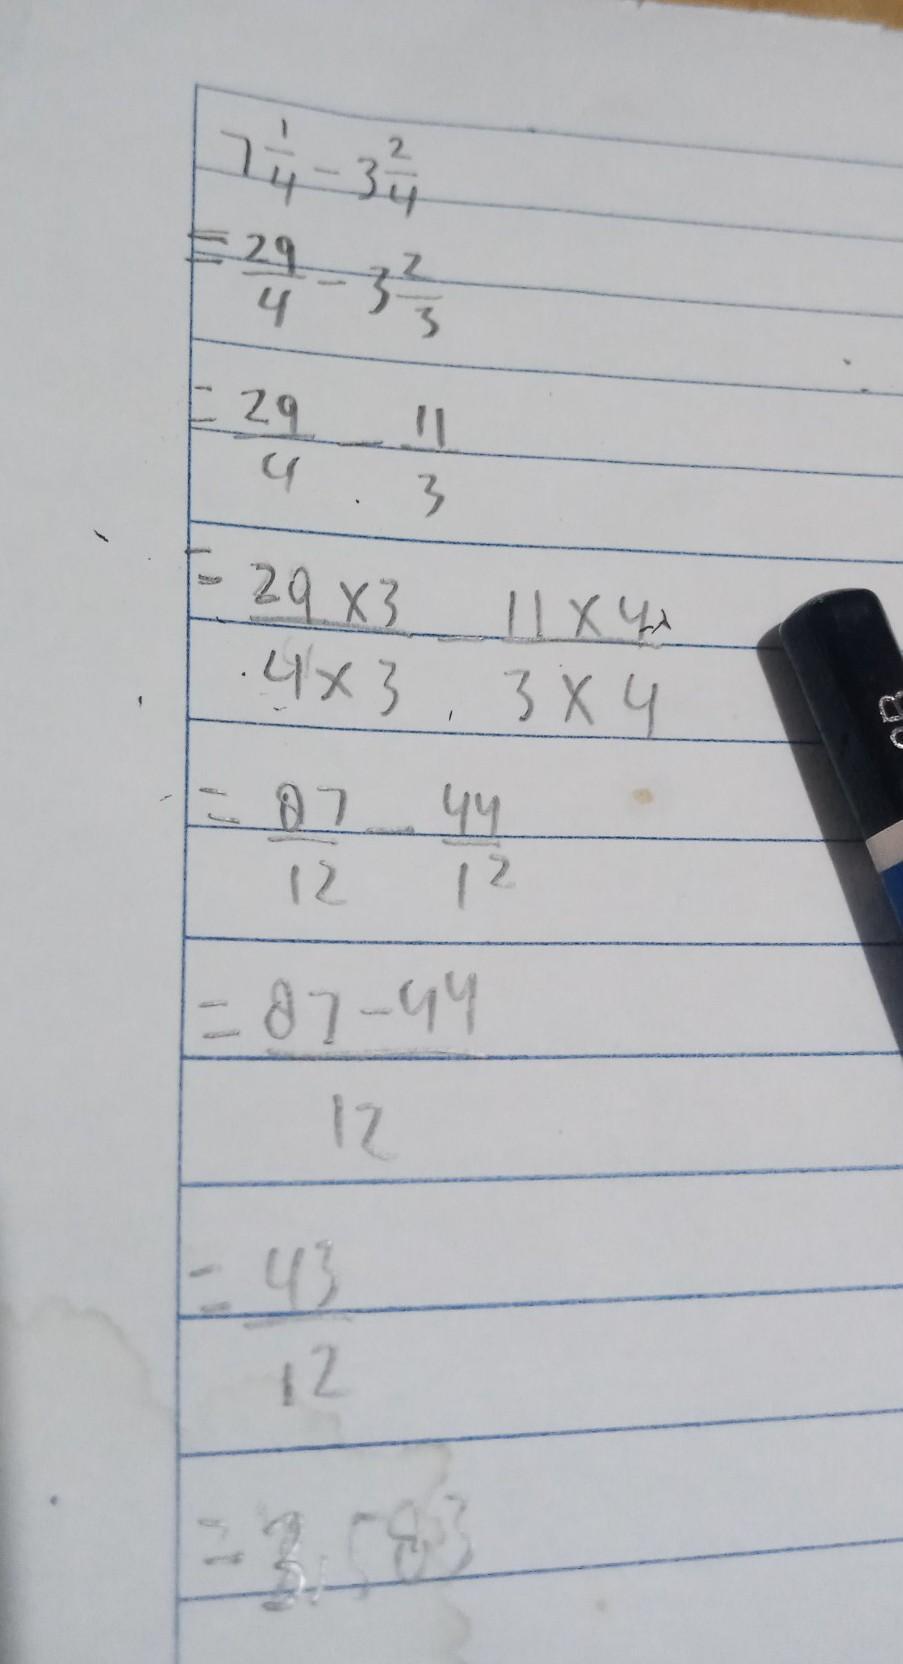 7 1/4 - 3 2/4
= 29/4 - 3 2/3
= 29/4 - 11/3
= 29 x 3/4 x 3 - 11 x 4/3 x 4
= 87/12 - 44/12
= 87 - 44/12
= 43/12
= 3.583
B